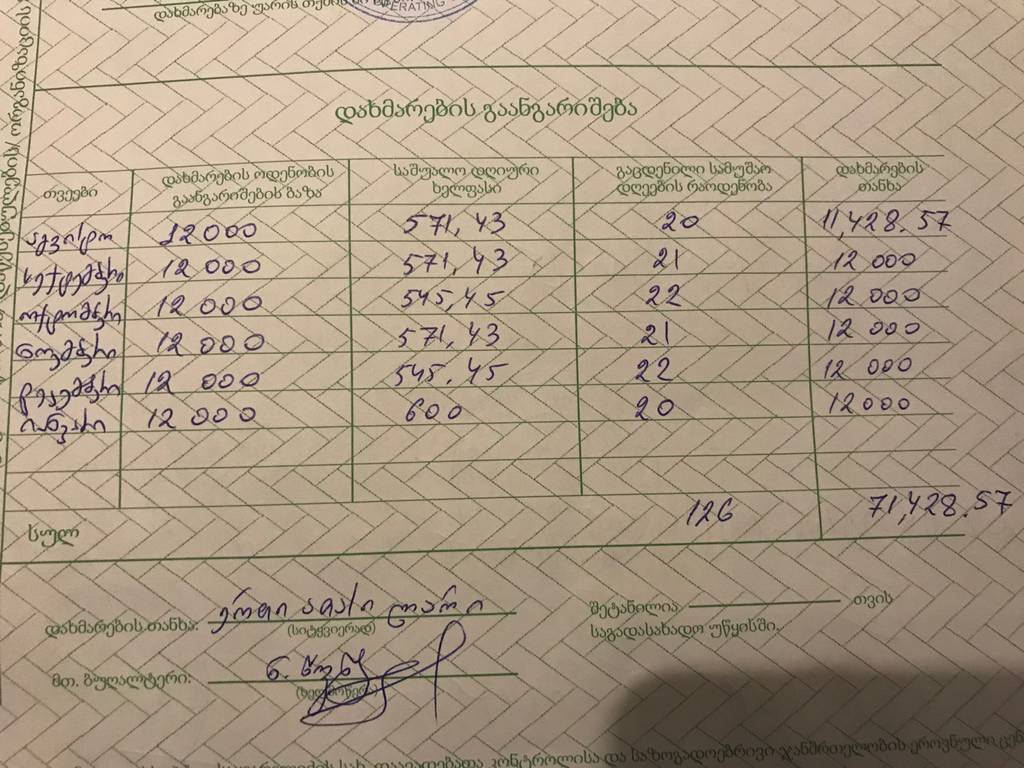 დახმარებაზე უარის
OPERATING
დახმარების გაანგარიშება
თვეები დახმარების ოდენობის გაანგარიშების ბაზა საშუალო დღიური ხელფასი გაცდენილი სამუშაო დღეების რაოდენობა დახმარების თანხა
აგვისტო 12000 571,43 20 11,428.57
სექტემბერი 12 000 571,43 21 12 000
ოქტომბერი 12 000 545,45 22 12 000
ნოემბერი 12 000 571,43 21 12 000
დეკემბერი 12 000 545.45 22 12 000
იანვარი 12 000 600 20 12000
სულ 126 71,428.57
დახმარების თანხა: ერთი ათასი ლარი
(სიტყვიერად)
შეტანილია თვის
საგადასახადო უწყისში.
მთ. ბუღალტერი: ნ.
(ხელმოწერა)
დაავადებათა კონტროლისა და საზოგადოებრივი ჯანმრთელობის ეროვნული ცენ